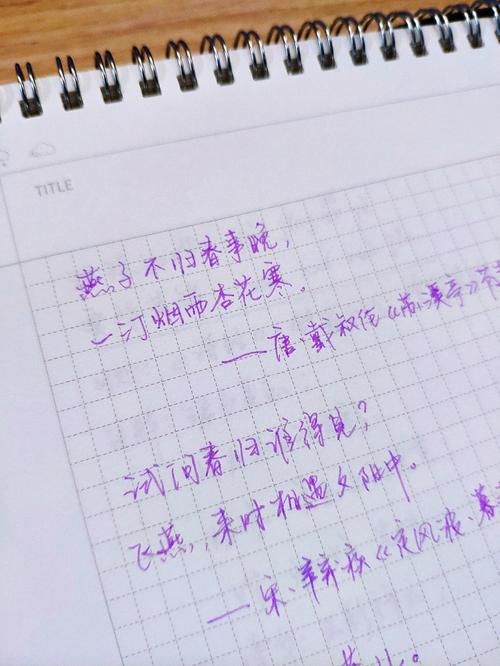 TITLE
燕子不归春事晚，
一汀烟雨杏花寒。
——唐·戴叔伦《苏溪亭》
试问春归谁得见？
飞燕，来时相遇夕阳中。
——宋·辛弃疾《定风波·暮春